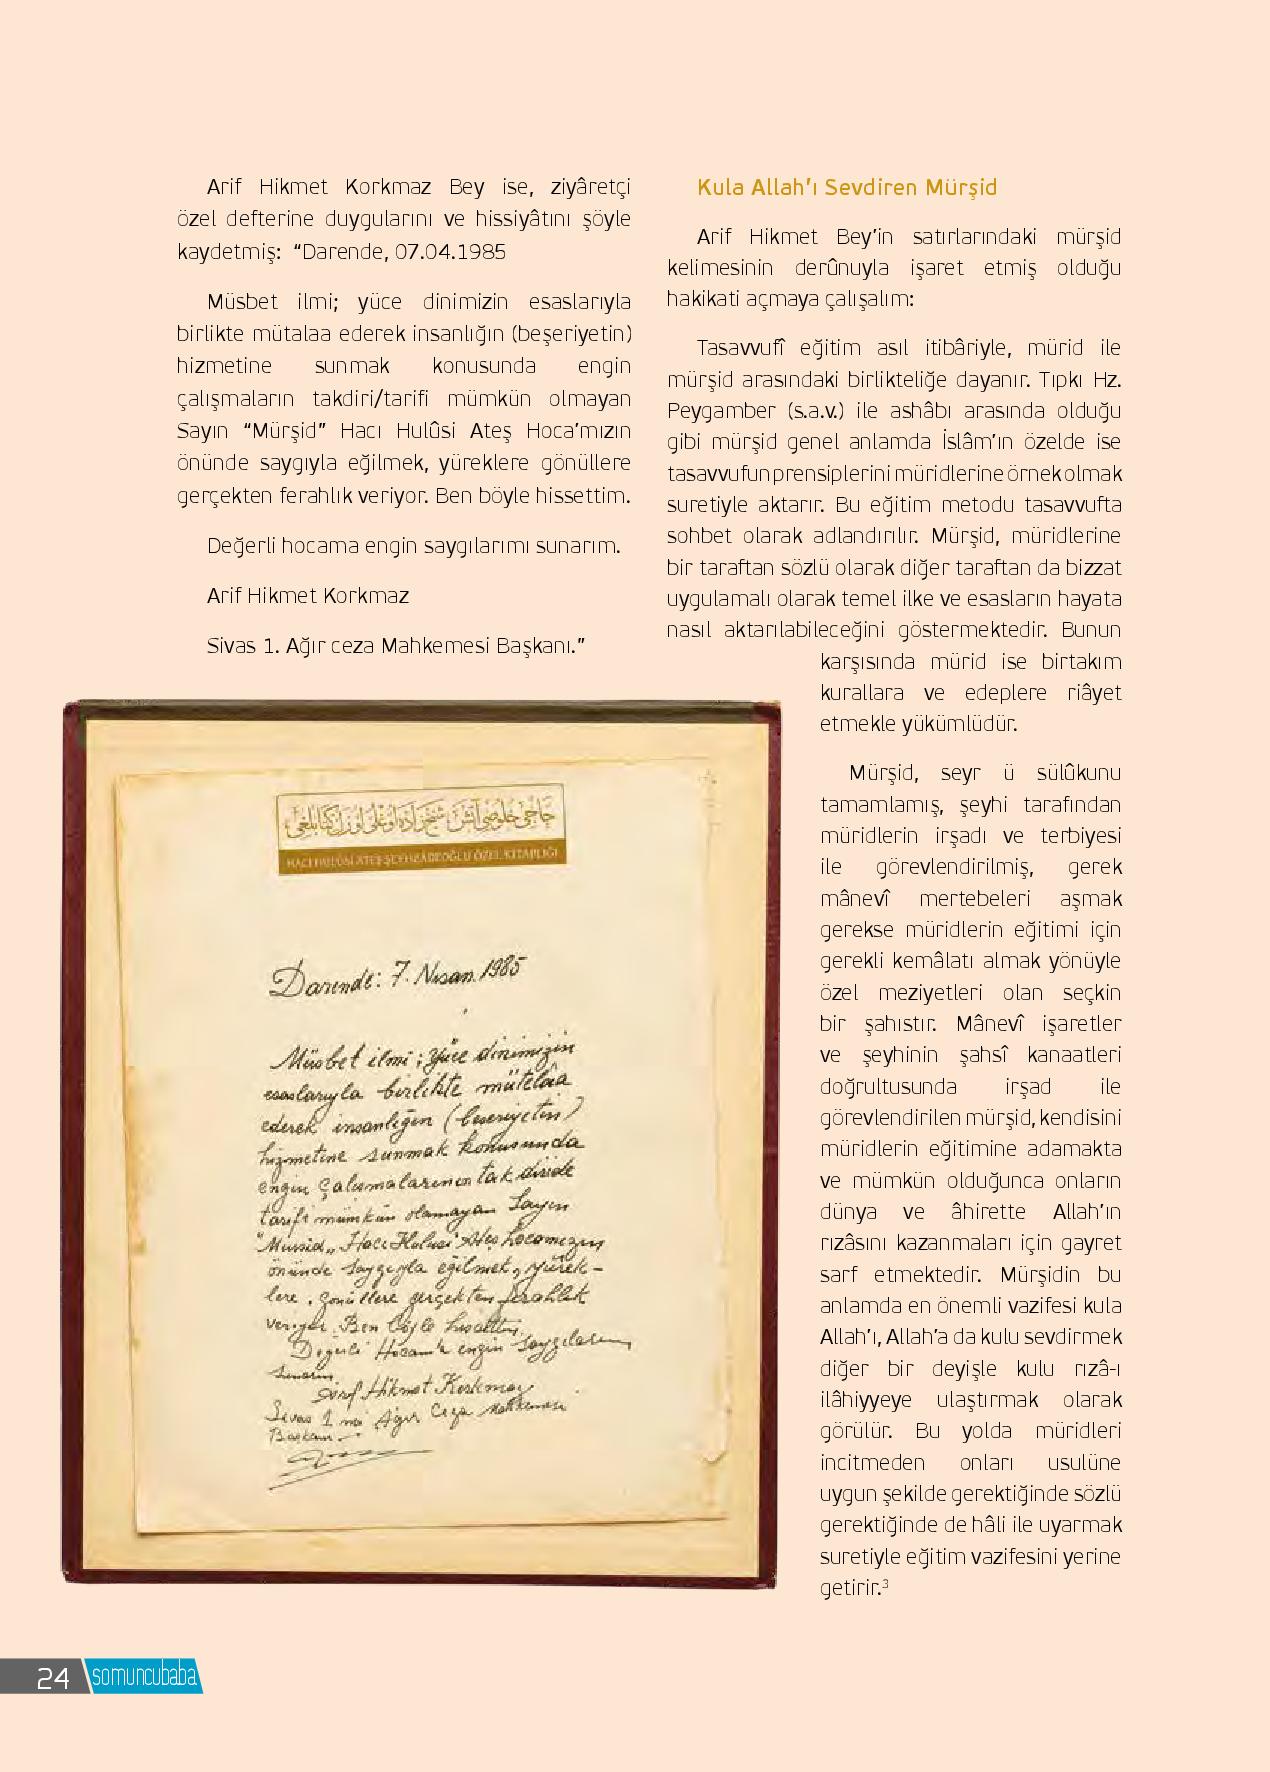 Arif Hikmet Korkmaz Bey ise, ziyâretçi
özel defterine duygularını ve hissiyâtını şöyle
kaydetmiş: “Darende, 07.04.1985
Müsbet ilmi; yüce dinimizin esaslarıyla
birlikte mütalaa ederek insanlığın (beşeriyetin)
hizmetine sunmak konusunda engin
çalışmaların takdiri/tarifi mümkün olmayan
Sayın “Mürşid” Hacı Hulûsi Ateş Hoca’mızın
önünde saygıyla eğilmek, yüreklere gönüllere
gerçekten ferahlık veriyor. Ben böyle hissettim.
Değerli hocama engin saygılarımı sunarım.
Arif Hikmet Korkmaz
Sivas 1. Ağır ceza Mahkemesi Başkanı.”
HACI HULÛSİ ATEŞ ŞEYHZÂDEOĞLU ÖZEL KİTAPLIĞI
Darende: 7. Nisan 1985
Müsbet ilmi; yüce dinimizin
esaslarıyla birlikte mütelâa
ederek insanlığın (beseriyetin)
hizmetine sunmak konusunda
engin çalışmalarının takdiride
tarifi mümkün olamayan Sayın
"Mürsid„ Hacı Hulusi Ateş hocamızın
önünde saygıyla eğilmek, yürek-
lere, gönüllere gerçekten ferahlık
veriyor. Ben böyle hissettim
Değerli Hocam'a engin saygılarımı
sunarım
Arif Hikmet Korkmaz
Sivas 1 nci Ağır Ceza Mahkemesi
Başkanı
Kula Allah’ı Sevdiren Mürşid
Arif Hikmet Bey’in satırlarındaki mürşid
kelimesinin derûnuyla işaret etmiş olduğu
hakikati açmaya çalışalım:
Tasavvufî eğitim asıl itibâriyle, mürid ile
mürşid arasındaki birlikteliğe dayanır. Tıpkı Hz.
Peygamber (s.a.v.) ile ashâbı arasında olduğu
gibi mürşid genel anlamda İslâm’ın özelde ise
tasavvufun prensiplerini müridlerine örnek olmak
suretiyle aktarır. Bu eğitim metodu tasavvufta
sohbet olarak adlandırılır. Mürşid, müridlerine
bir taraftan sözlü olarak diğer taraftan da bizzat
uygulamalı olarak temel ilke ve esasların hayata
nasıl aktarılabileceğini göstermektedir. Bunun
karşısında mürid ise birtakım
kurallara ve edeplere riâyet
etmekle yükümlüdür.
Mürşid, seyr ü sülûkunu
tamamlamış, şeyhi tarafından
müridlerin irşadı ve terbiyesi
ile görevlendirilmiş, gerek
mânevî mertebeleri aşmak
gerekse müridlerin eğitimi için
gerekli kemâlatı almak yönüyle
özel meziyetleri olan seçkin
bir şahıstır. Mânevî işaretler
ve şeyhinin şahsî kanaatleri
doğrultusunda irşad ile
görevlendirilen mürşid, kendisini
müridlerin eğitimine adamakta
ve mümkün olduğunca onların
dünya ve âhirette Allah’ın
rızâsını kazanmaları için gayret
sarf etmektedir. Mürşidin bu
anlamda en önemli vazifesi kula
Allah’ı, Allah’a da kulu sevdirmek
diğer bir deyişle kulu rızâ-ı
ilâhiyyeye ulaştırmak olarak
görülür. Bu yolda müridleri
incitmeden onları usulüne
uygun şekilde gerektiğinde sözlü
gerektiğinde de hâli ile uyarmak
suretiyle eğitim vazifesini yerine
getirir.³
24 somuncubaba